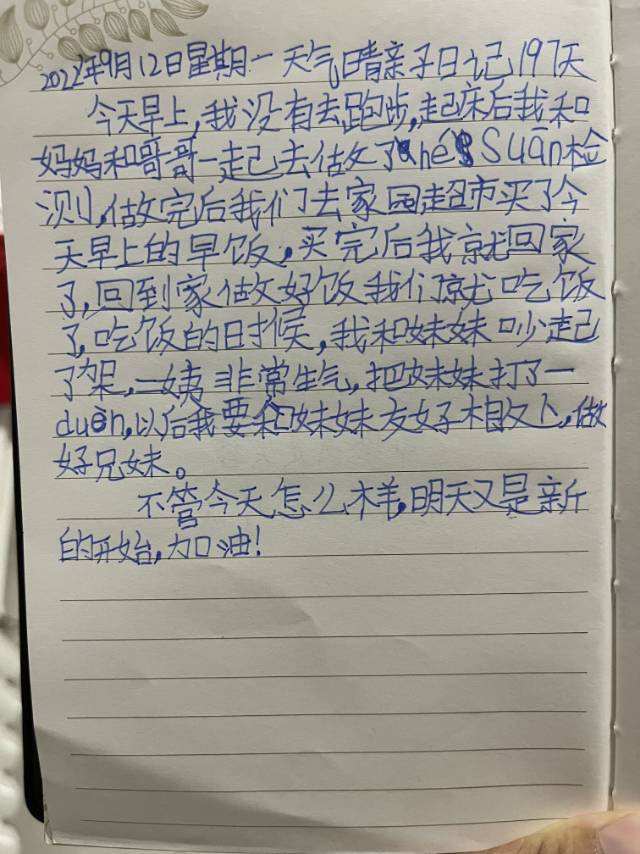 2022年9月12日星期一天气晴亲子日记197天
今天早上,我没有去跑步,起床后我和
妈妈和哥哥一起去做了hé Suān检
测,做完后我们去家园超市买了今
天早上的早饭,买完后我就回家
了,回到家做好饭我们就吃饭
了,吃饭的时候,我和妹妹吵起
了架,二姨非常生气,把妹妹打了一
duèn,以后我要和妹妹友好相处,做
好兄妹。
不管今天怎么样,明天又是新
的开始,加油!